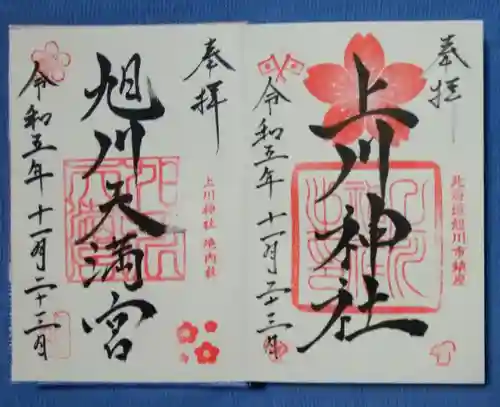 奉拝
北海道旭川市鎮座
上川神社
令和五年十一月二十三日
奉拝
上川神社境内社
旭川天満宮
令和五年十一月二十三日